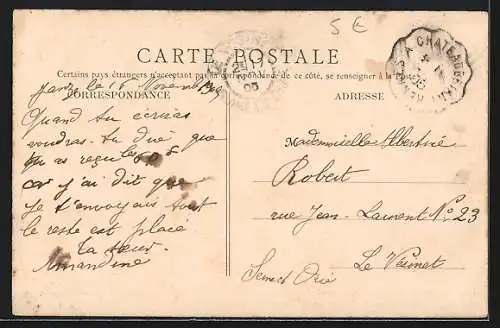 5 €
CARTE POSTALE
Certains pays étrangers n'acceptant pas la correspondance de ce côté, se renseigner à la Poste
CORRESPONDANCE
ADRESSE
le 16 Novembre
Quand tu écrias
voudras tu diré que
tu as reçu les 60 f
car j'ai dit que
je t'envoyais tout
le reste est placé
ta sœur
Amandine
Mademoiselle Albertine
Robert
rue Jean-Laurent No 23
Le Vésinet
Seine et Oise